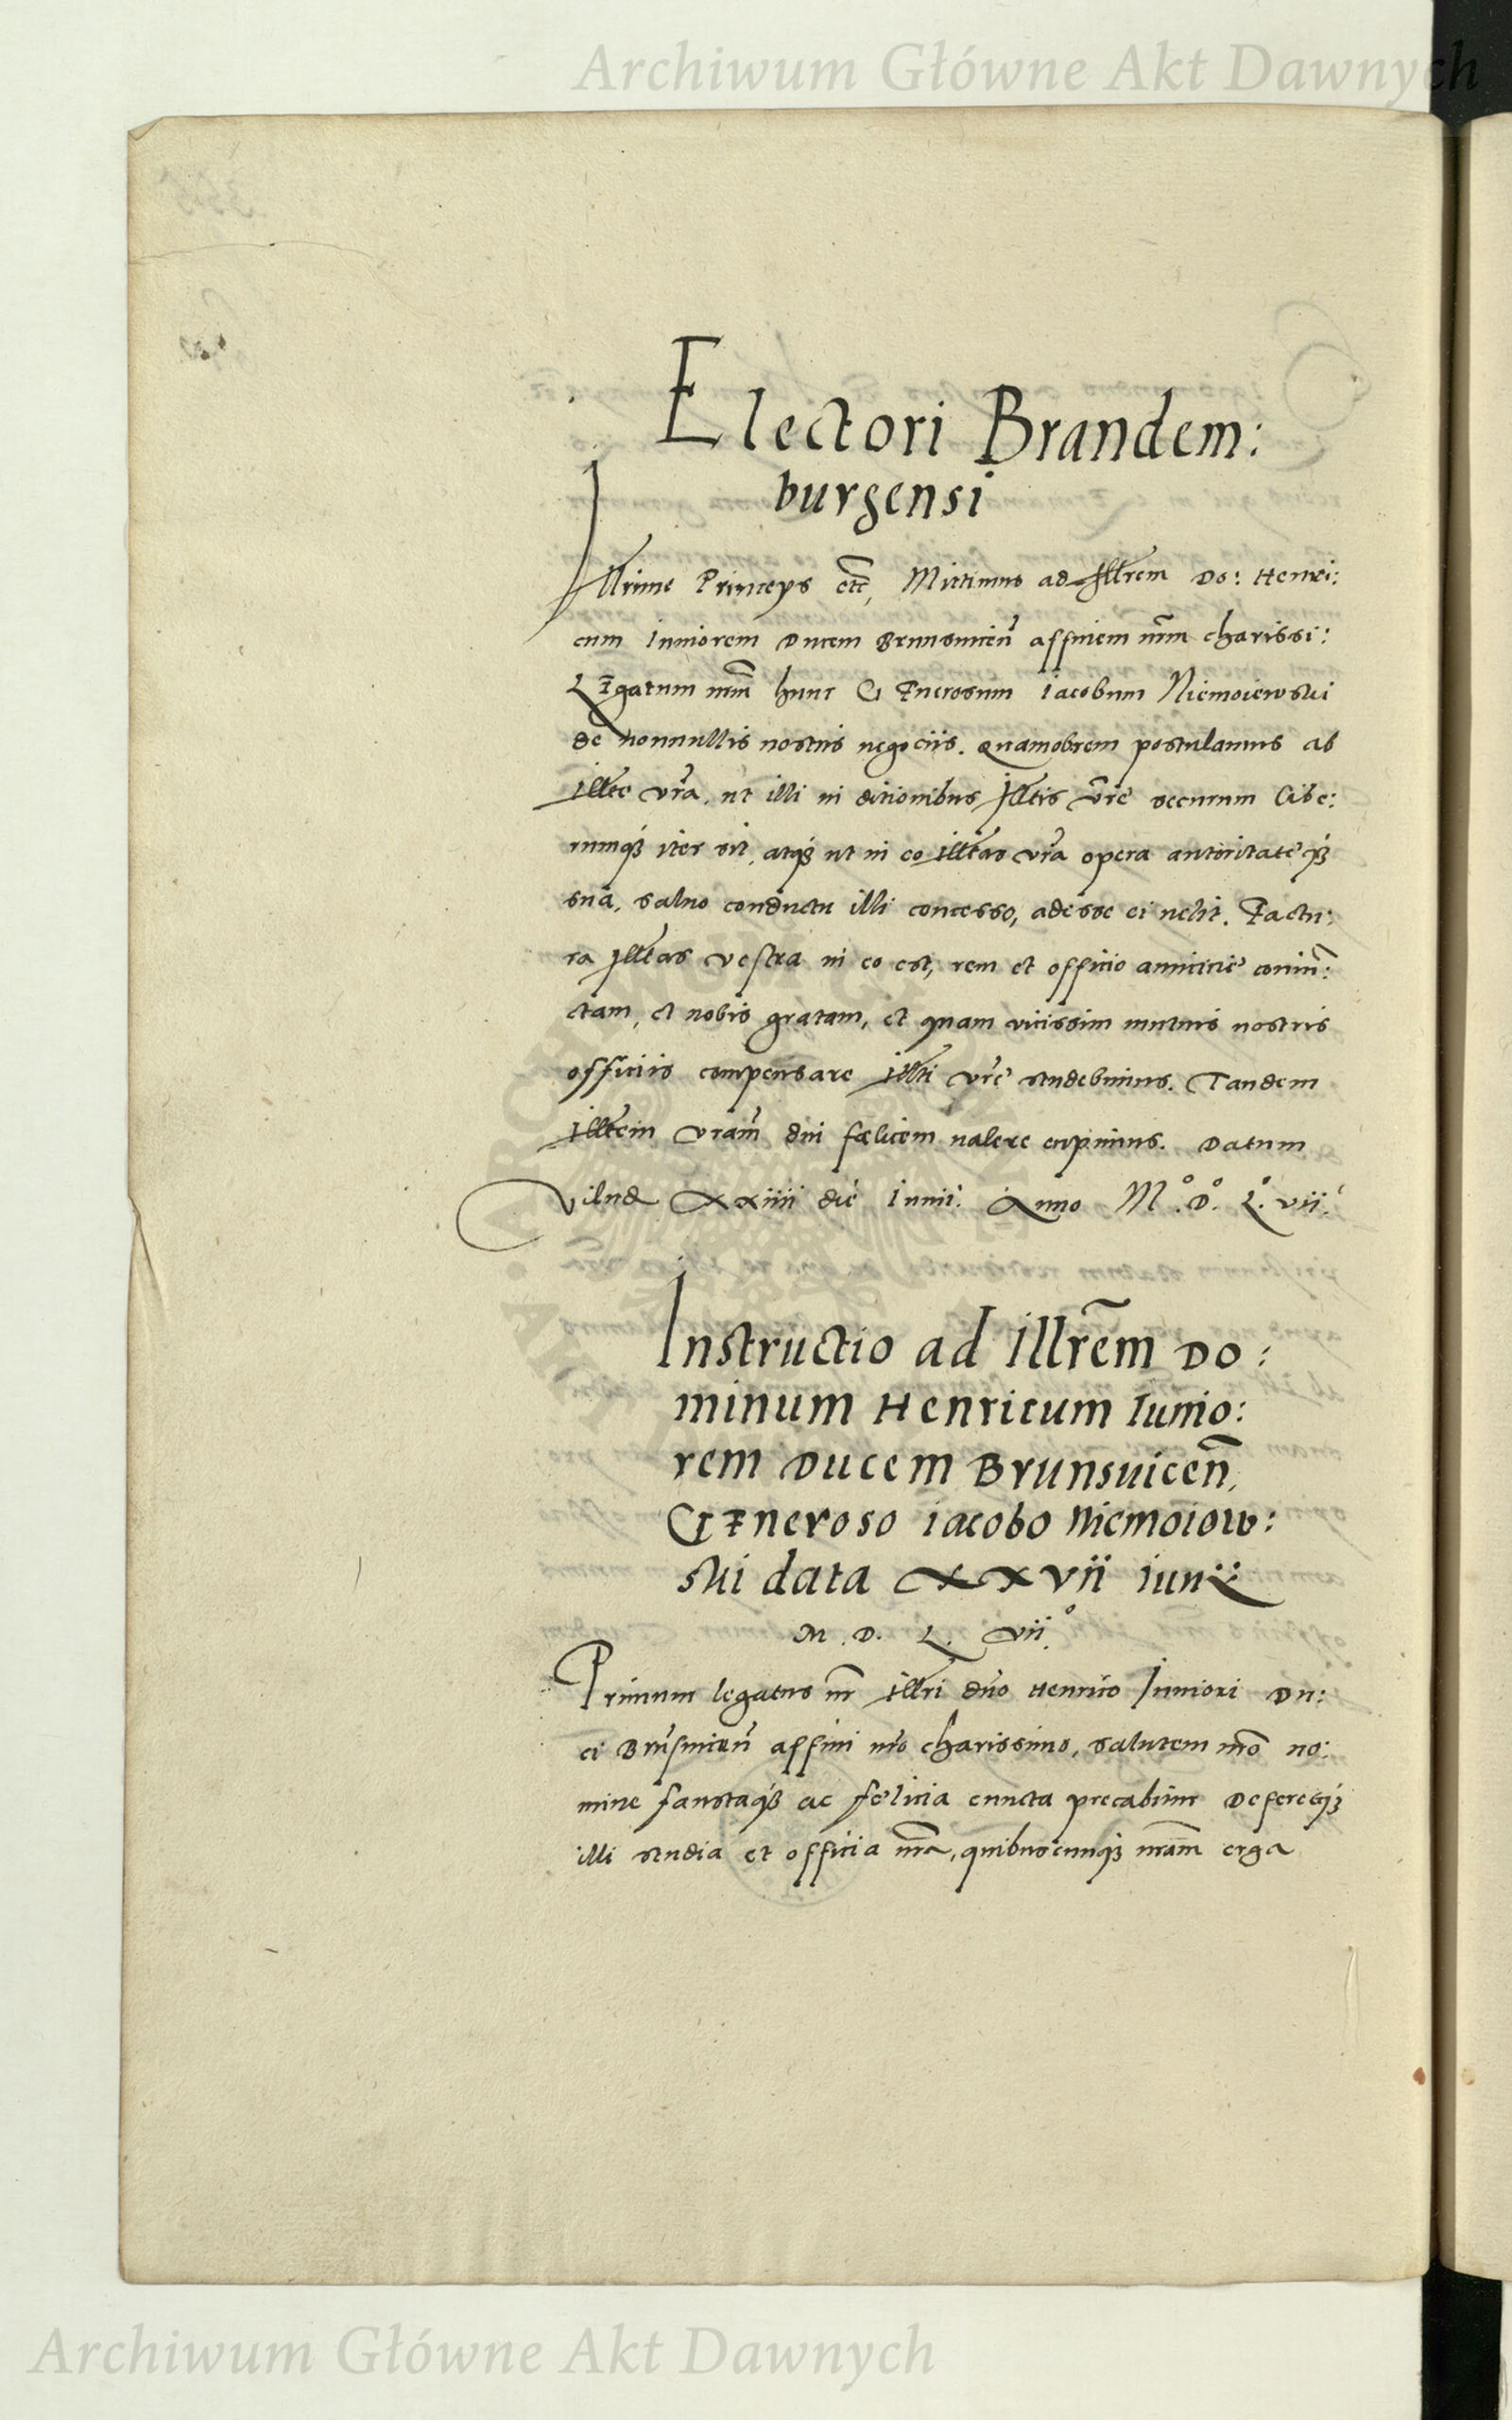 Archiwum Główne Akt Dawnych
Electori Brandem:
burgensi
Illrime Princeps etc̃, Mittimus ad Illrem Do: Henri:
cum Iuniorem Ducem Brunsuicen̄ affinem nr̄m charissi:
Legatum nr̄m hunc Generosum Iacobum Niemoiewski
de nonnullis nostris negociis. Quamobrem postulamus ab
Illte vr̄a, ut illi in ditionibus Illtis vr̄e securum libe:
rumq3 iter sit, atq3 ut in eo Illtas vr̄a opera autoritateq3
sua, saluo conductu illi concesso, adesse ei uelit. Factu:
ra Illtas vestra in eo est, rem et officio amicicie coniun̄:
ctam, et nobis gratam, et quam vicissim mutuis nostris
officiis compensare Illti vr̄e studebimus. Tandem
Illtem vram̄ diu fœlicem ualere cupimus. Datum
Vilnę XXIIII die Iunii. Anno M.° D.° L.° vii.°
Instructio ad Illrēm Do:
minum Henricum Iunio:
rem Ducem Brunsuicen̄,
Generoso Iacobo Niemoiow:
ski data XXVII Iunii
M. D. L. VII°
Primum legatus nr̄ Illri dn̄o Henrico Iuniori Du:
ci Brunsuicen̄ affini nr̄o charissimo, salutem nr̄o no:
mine faustaq3 ac fęlicia cuncta precabitur Deferetq3
illi studia et officia nr̄a, quibuscunq3 nr̄am erga
Archiwum Główne Akt Dawnych